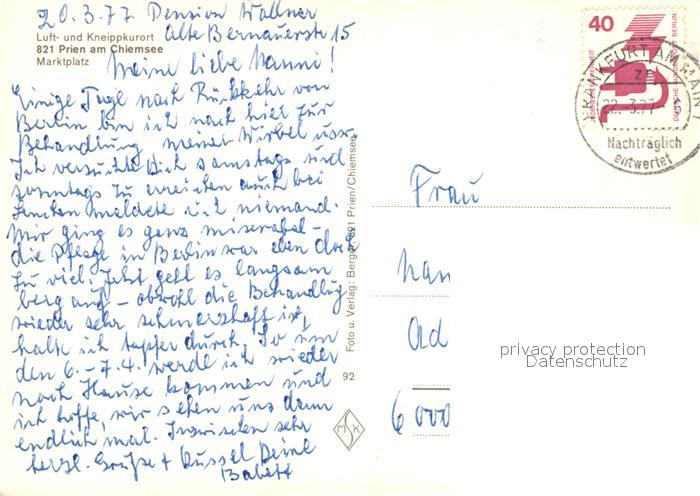 20.3.77 Pension Wallner
Alte Bernauerstr 15
Luft- und Kneippkurort
821 Prien am Chiemsee
Marktplatz
Meine liebe Nanni!
Einige Tage nach Rückkehr von
Berlin bin ich nach hier zur
Behandlung meiner Wirbel usw.
Ich versuchte Dich samstags und
sonntags zu erreichen auch bei
meldete sich niemand.
Mir ging es ganz miserabel -
die Pflege in Berlin war eben doch
zu viel. Jetzt geht es langsam
berg auf - obwohl die Behandlung
wieder sehr schmerzhaft ist,
halte ich tapfer durch. So um
den 6. - 7.4. werde ich wieder
nach Hause kommen und
ich hoffe, wir sehen uns dann
endlich mal. Inzwischen sehr
herzl. Grüße + Bussel Deine
Babett
Foto u. Verlag: Berger, 821 Prien/Chiemsee
92
MSK
40
DEUTSCHE BUNDESPOST BERLIN
FRANKFURT AM MAIN
22.-3.77
Nachträglich
entwertet
Frau
Nan
Ad
6000
privacy protection
Datenschutz